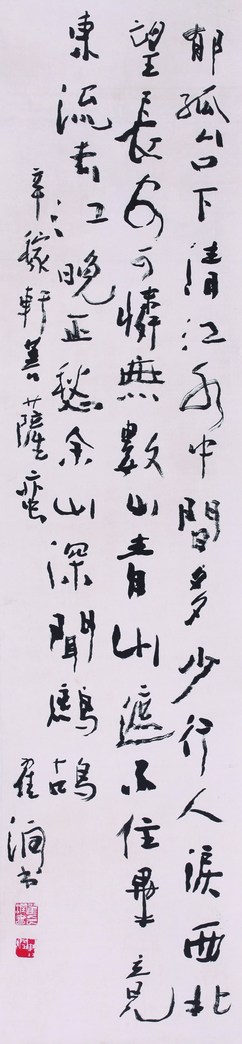 郁孤台下清江水中間多少行人淚西北
望長安可憐無數山青山遮不住畢竟
東流去江晚正愁余山深聞鷓鴣
辛稼軒菩薩蛮